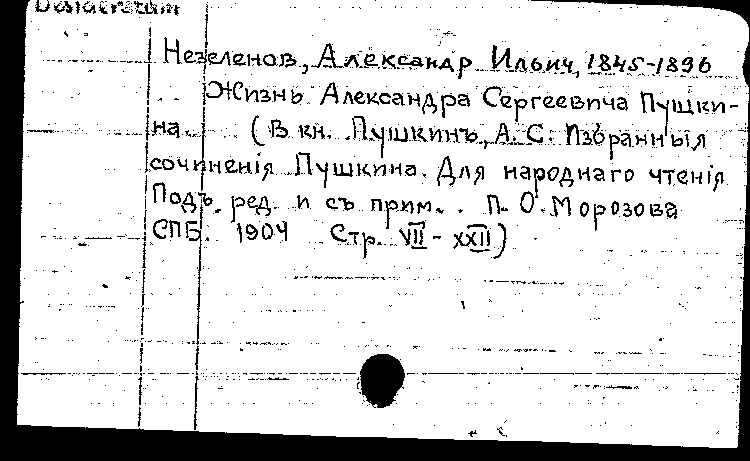 Desideratum
Незеленов, Александр Ильич, 1845-1896
Жизнь Александра Сергеевича Пушки-
на. (В кн. Пушкинъ, А. С. Избранныя
сочиненія Пушкина. Для народнаго чтенія
Подъ. ред. и съ прим. . П. О. Морозова
СПБ. 1904 Стр. VII - XXII)